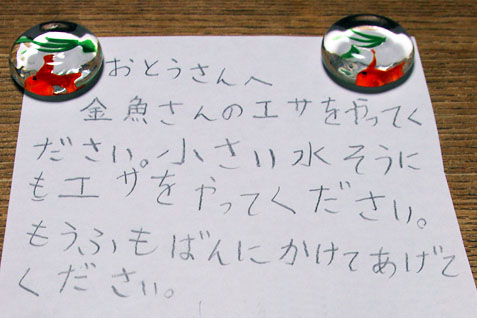 おとうさんへ
金魚さんのエサをやってく
ださい。小さい水そうに
もエサをやってください。
もうふもばんにかけてあげて
ください。